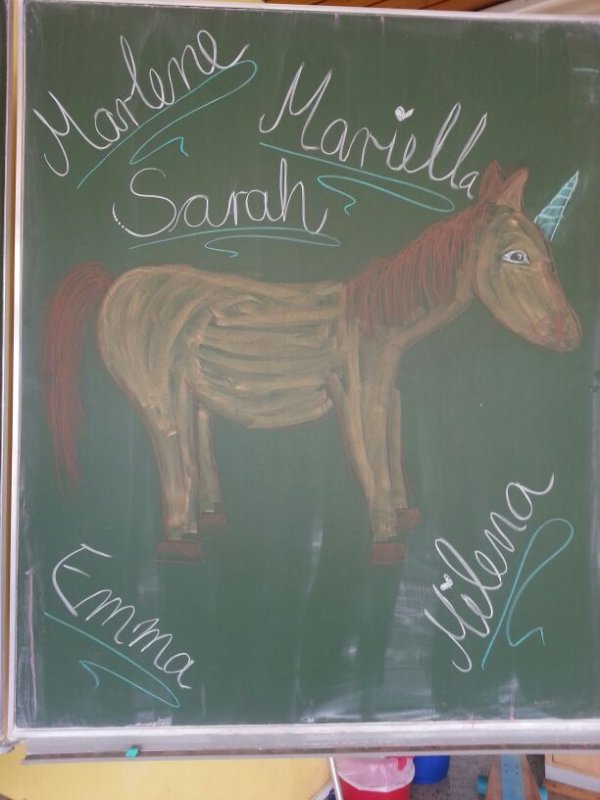 Marlene
Mariella
Sarah
Emma
Milena